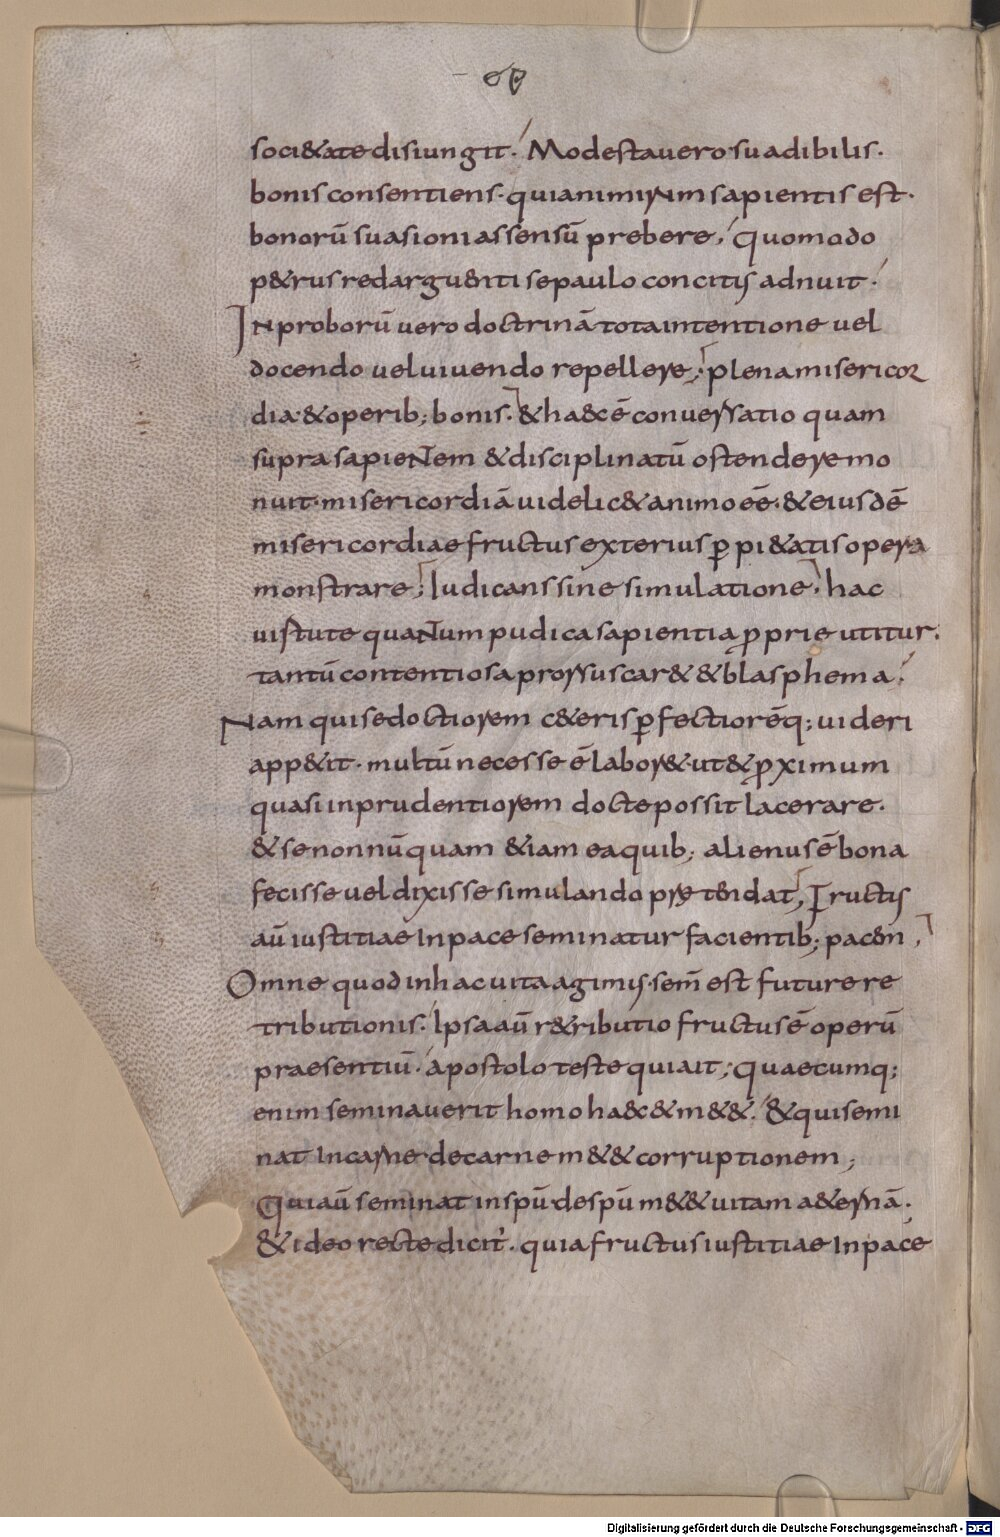 soci&ate disiungit. Modesta uero suadibilis.
bonis consentiens. quia nimirum sapientis est.
bonorū suasioni assensū prebere, Quomodo
p&rus redarguenti se paulo concitis adnuit.
Inproborū uero doctrinā tota intentione uel
docendo uel uiuendo repellere; plena misericor
dia & operib; bonis. & haec ē conuersatio quam
supra sapieNtem & disciplinatū ostendere mo
nuit. misericordiā uidelic& animo eē. & eiusdē
misericordiae fructus exterius ꝑ pi&atis opera
monstrare; Iudicans sine simulatione, hac
uirtute quaNtum pudica sapientia ꝓprie utitur.
tantū contentiosa prorsus car& & blasphema.
Nam qui se doctiorem c&eris ꝑfectiorēq; uideri
app&it. multū necesse ē labor& ut & ꝓximum
quasi inprudentiorem docte possit lacerare.
& se nonnūquam &iam ea quib; alienus ē bona
fecisse uel dixisse simulando pretendat; Fructus
aū iustitiae In pace seminatur facientib; pacem,
Omne quod in hac uita agimus. sem̄ est future re
tributionis. Ipsa aū r&ributio fructus ē operū
praesentiū. apostolo teste qui ait; Quaecumq;
enim seminauerit homo haec & m&&. & qui semi
nat In carne de carne m&& corruptionem;
Qui aū seminat in spū de spū m&& uitam a&ernā.
& ideo recte dicit᷑. quia fructus iustitiae In pace
Digitalisierung gefördert durch die Deutsche Forschungsgemeinschaft - DFG